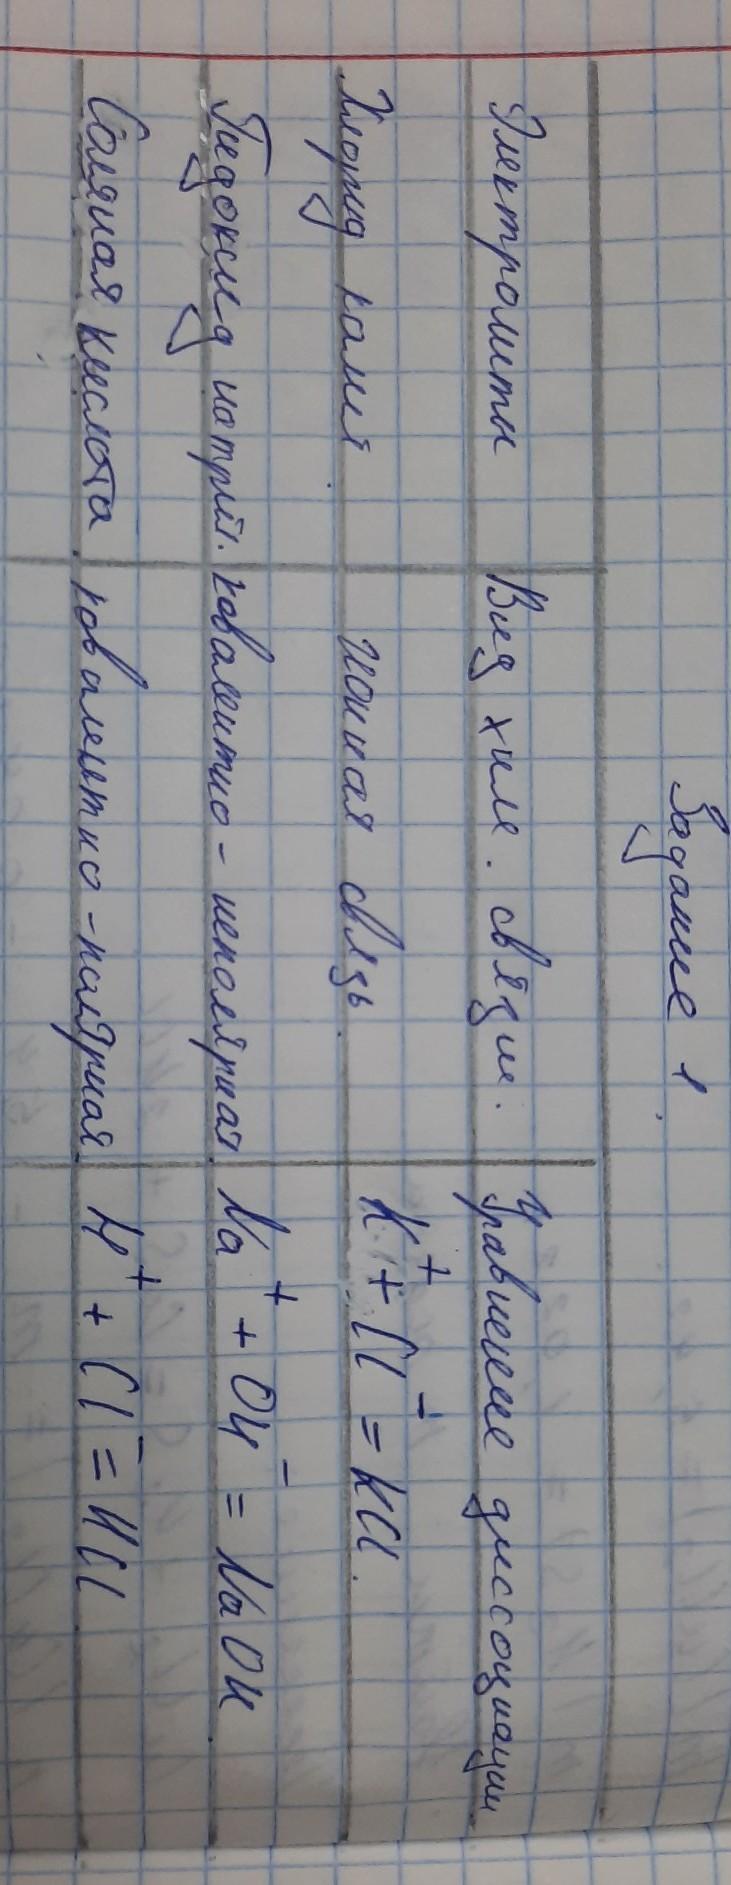 Задание 1.
Электролиты Вид хим. связи. Уравнение диссоциации
Хлорид калия ионная связь. K⁺ + Cl⁻ = KCl.
Гидоксид натрия. ковалентно-неполярная. Na⁺ + OH⁻ = NaOH.
Соляная кислота ковалентно-полярная. H⁺ + Cl⁻ = HCl